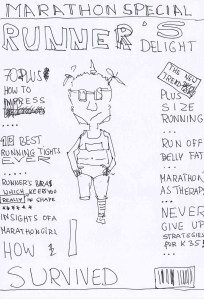 MARATHON SPECIAL
RUNNER'S
DELIGHT
70 PLUS
HOW TO
IMPRESS
BEST
RUNNING TIGHTS
EVER
RUNNER'S BRAS
WHICH KEEP YOU
REALLY IN SHAPE
INSIGHTS OF A
MARATHONGIRL
HOW I
SURVIVED
THE NEW
TREND
PLUS
SIZE
RUNNING
RUN OFF
BELLY FAT
MARATHON
AS THERAPY
NEVER
GIVE UP
STRATEGIES
FOR K 35!